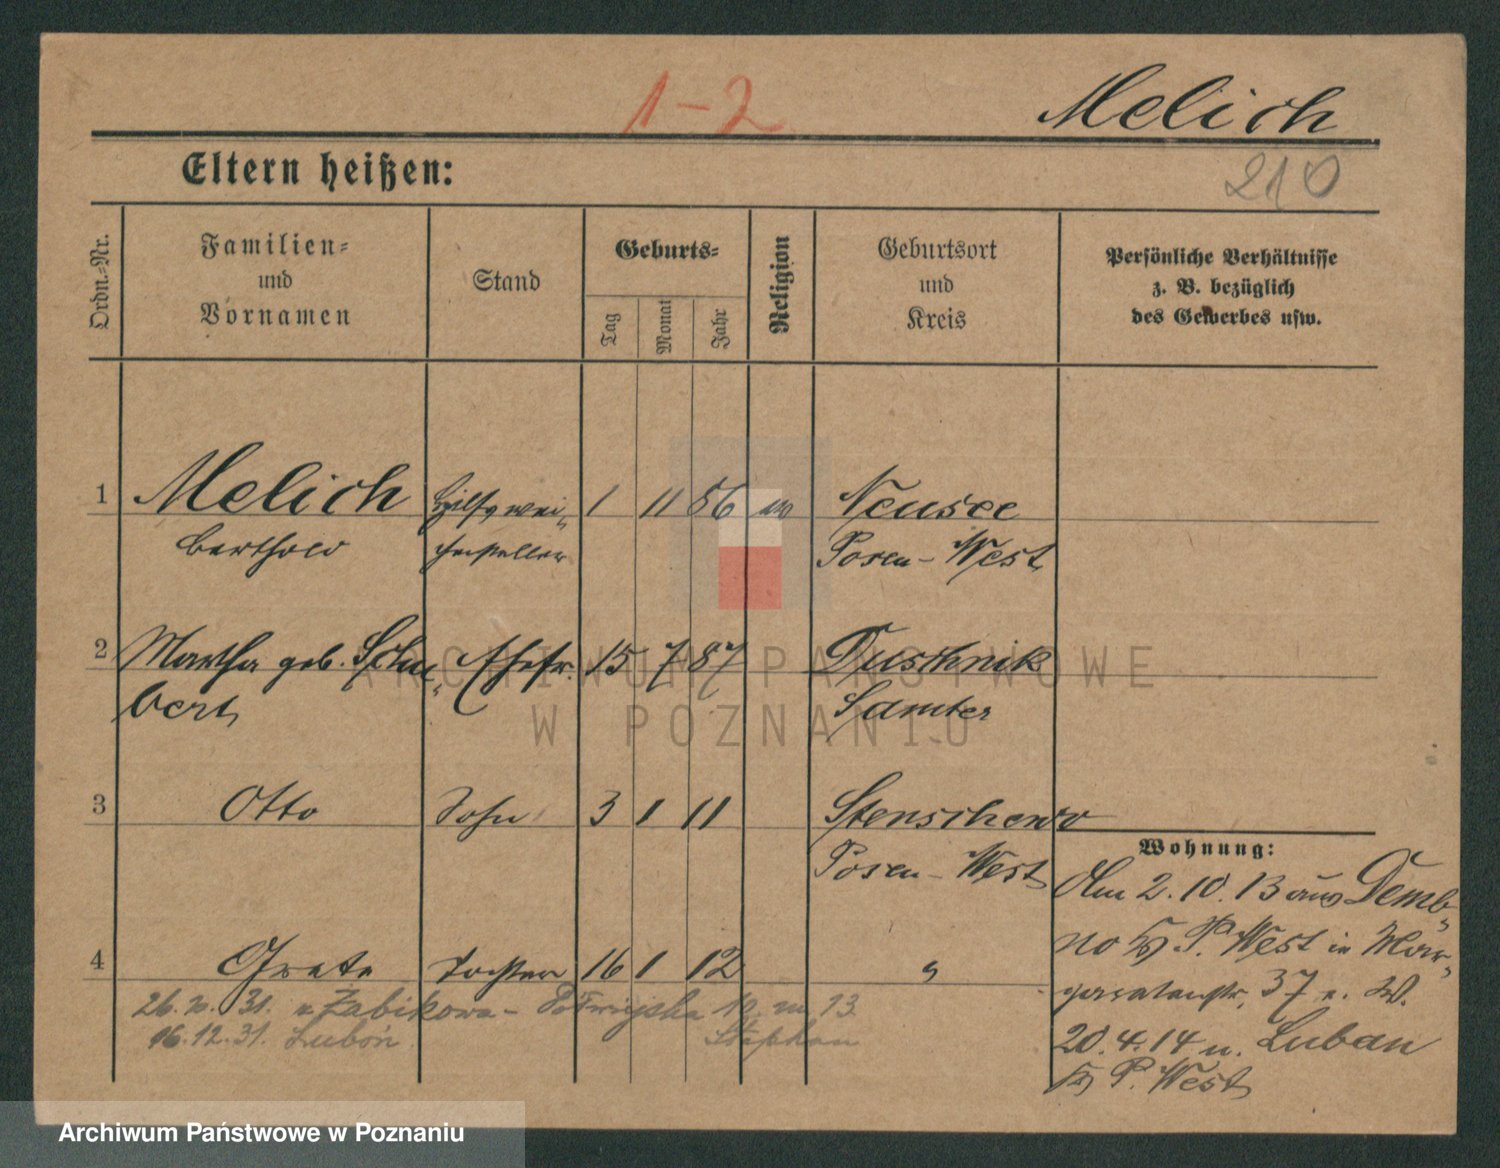 1-2
Melich
210
Eltern heißen:
Ordn.-Nr.
Familien-
und
Vornamen
Stand
Geburts-
Tag
Monat
Jahr
Religion
Geburtsort
und
Kreis
Persönliche Verhältnisse
z. B. bezüglich
des Gewerbes usw.
1 Melich Hilfswei- 1 11 86 Neusee
Berthold chensteller Posen-West
2 Martha geb. Schu- Ehefr. 15 7 87 Duschnik
bert Samter
3 Otto Sohn 3 1 11 Stenschewo
Posen-West
4 Grete Tochter 16 1 12 "
Wohnung:
Am 2.10.13 aus Demb-
no P. West in Mar-
37 W.
20.4.14 n. Luban
P. West
31. Żabikowo - m 13
16.12.31. Luboń
ARCHIWUM PAŃSTWOWE
W POZNANIU
Archiwum Państwowe w Poznaniu